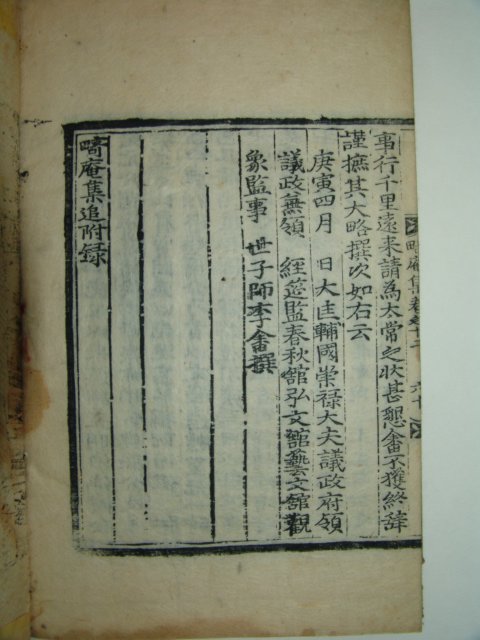 畸庵集卷
事行千里遠来請為太常之狀甚懇畬不獲終辞
謹摭其大略撰次如右云
庚寅四月 日大匡輔國崇禄大夫議政府領
議政兼領 經筵監春秋舘弘文舘藝文舘觀
象監事 世子師李畬撰
畸庵集追附録